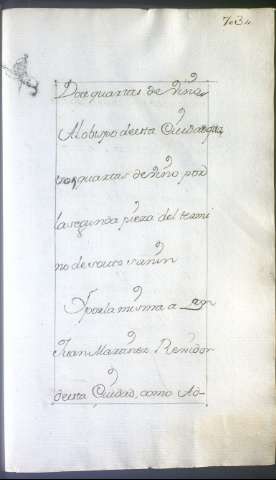 7034
Dos quartas de Vino
Al obispo de esta Ciudad
tres quartas de vino por
la segunda pieza del termi
no de souto sanin
Y por la misma a
Juan Martinez Rexidor
de esta Ciudad, como Ad-